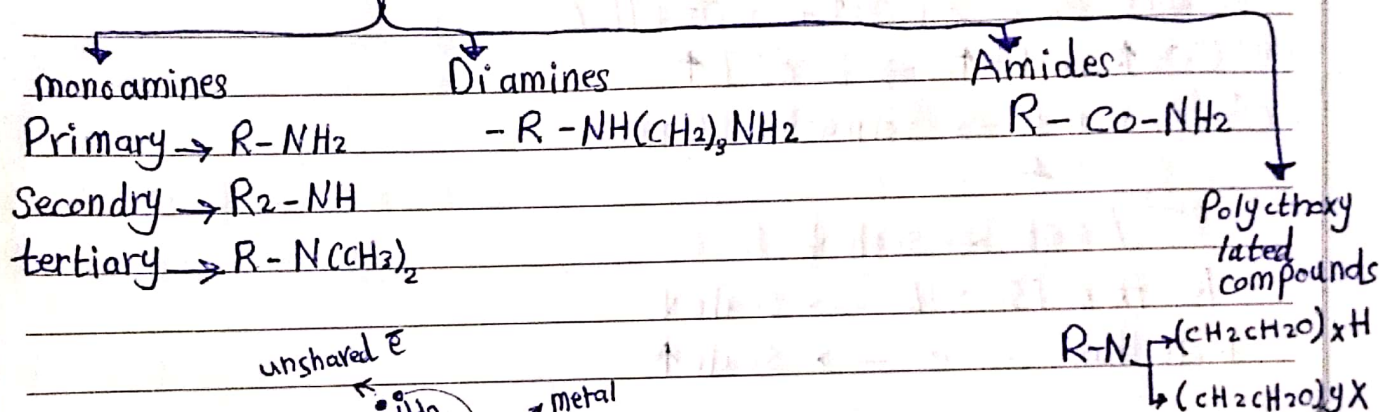 monoamines
Primary → R-NH2
Secondry → R2-NH
tertiary → R-N(CH3)2
Diamines
- R -NH(CH2)3NH2
Amides
R-CO-NH2
Polyethoxy
lated
compounds
R-N → (CH2CH2O)xH
↳ (CH2CH2O)yX
unshared ē
metal